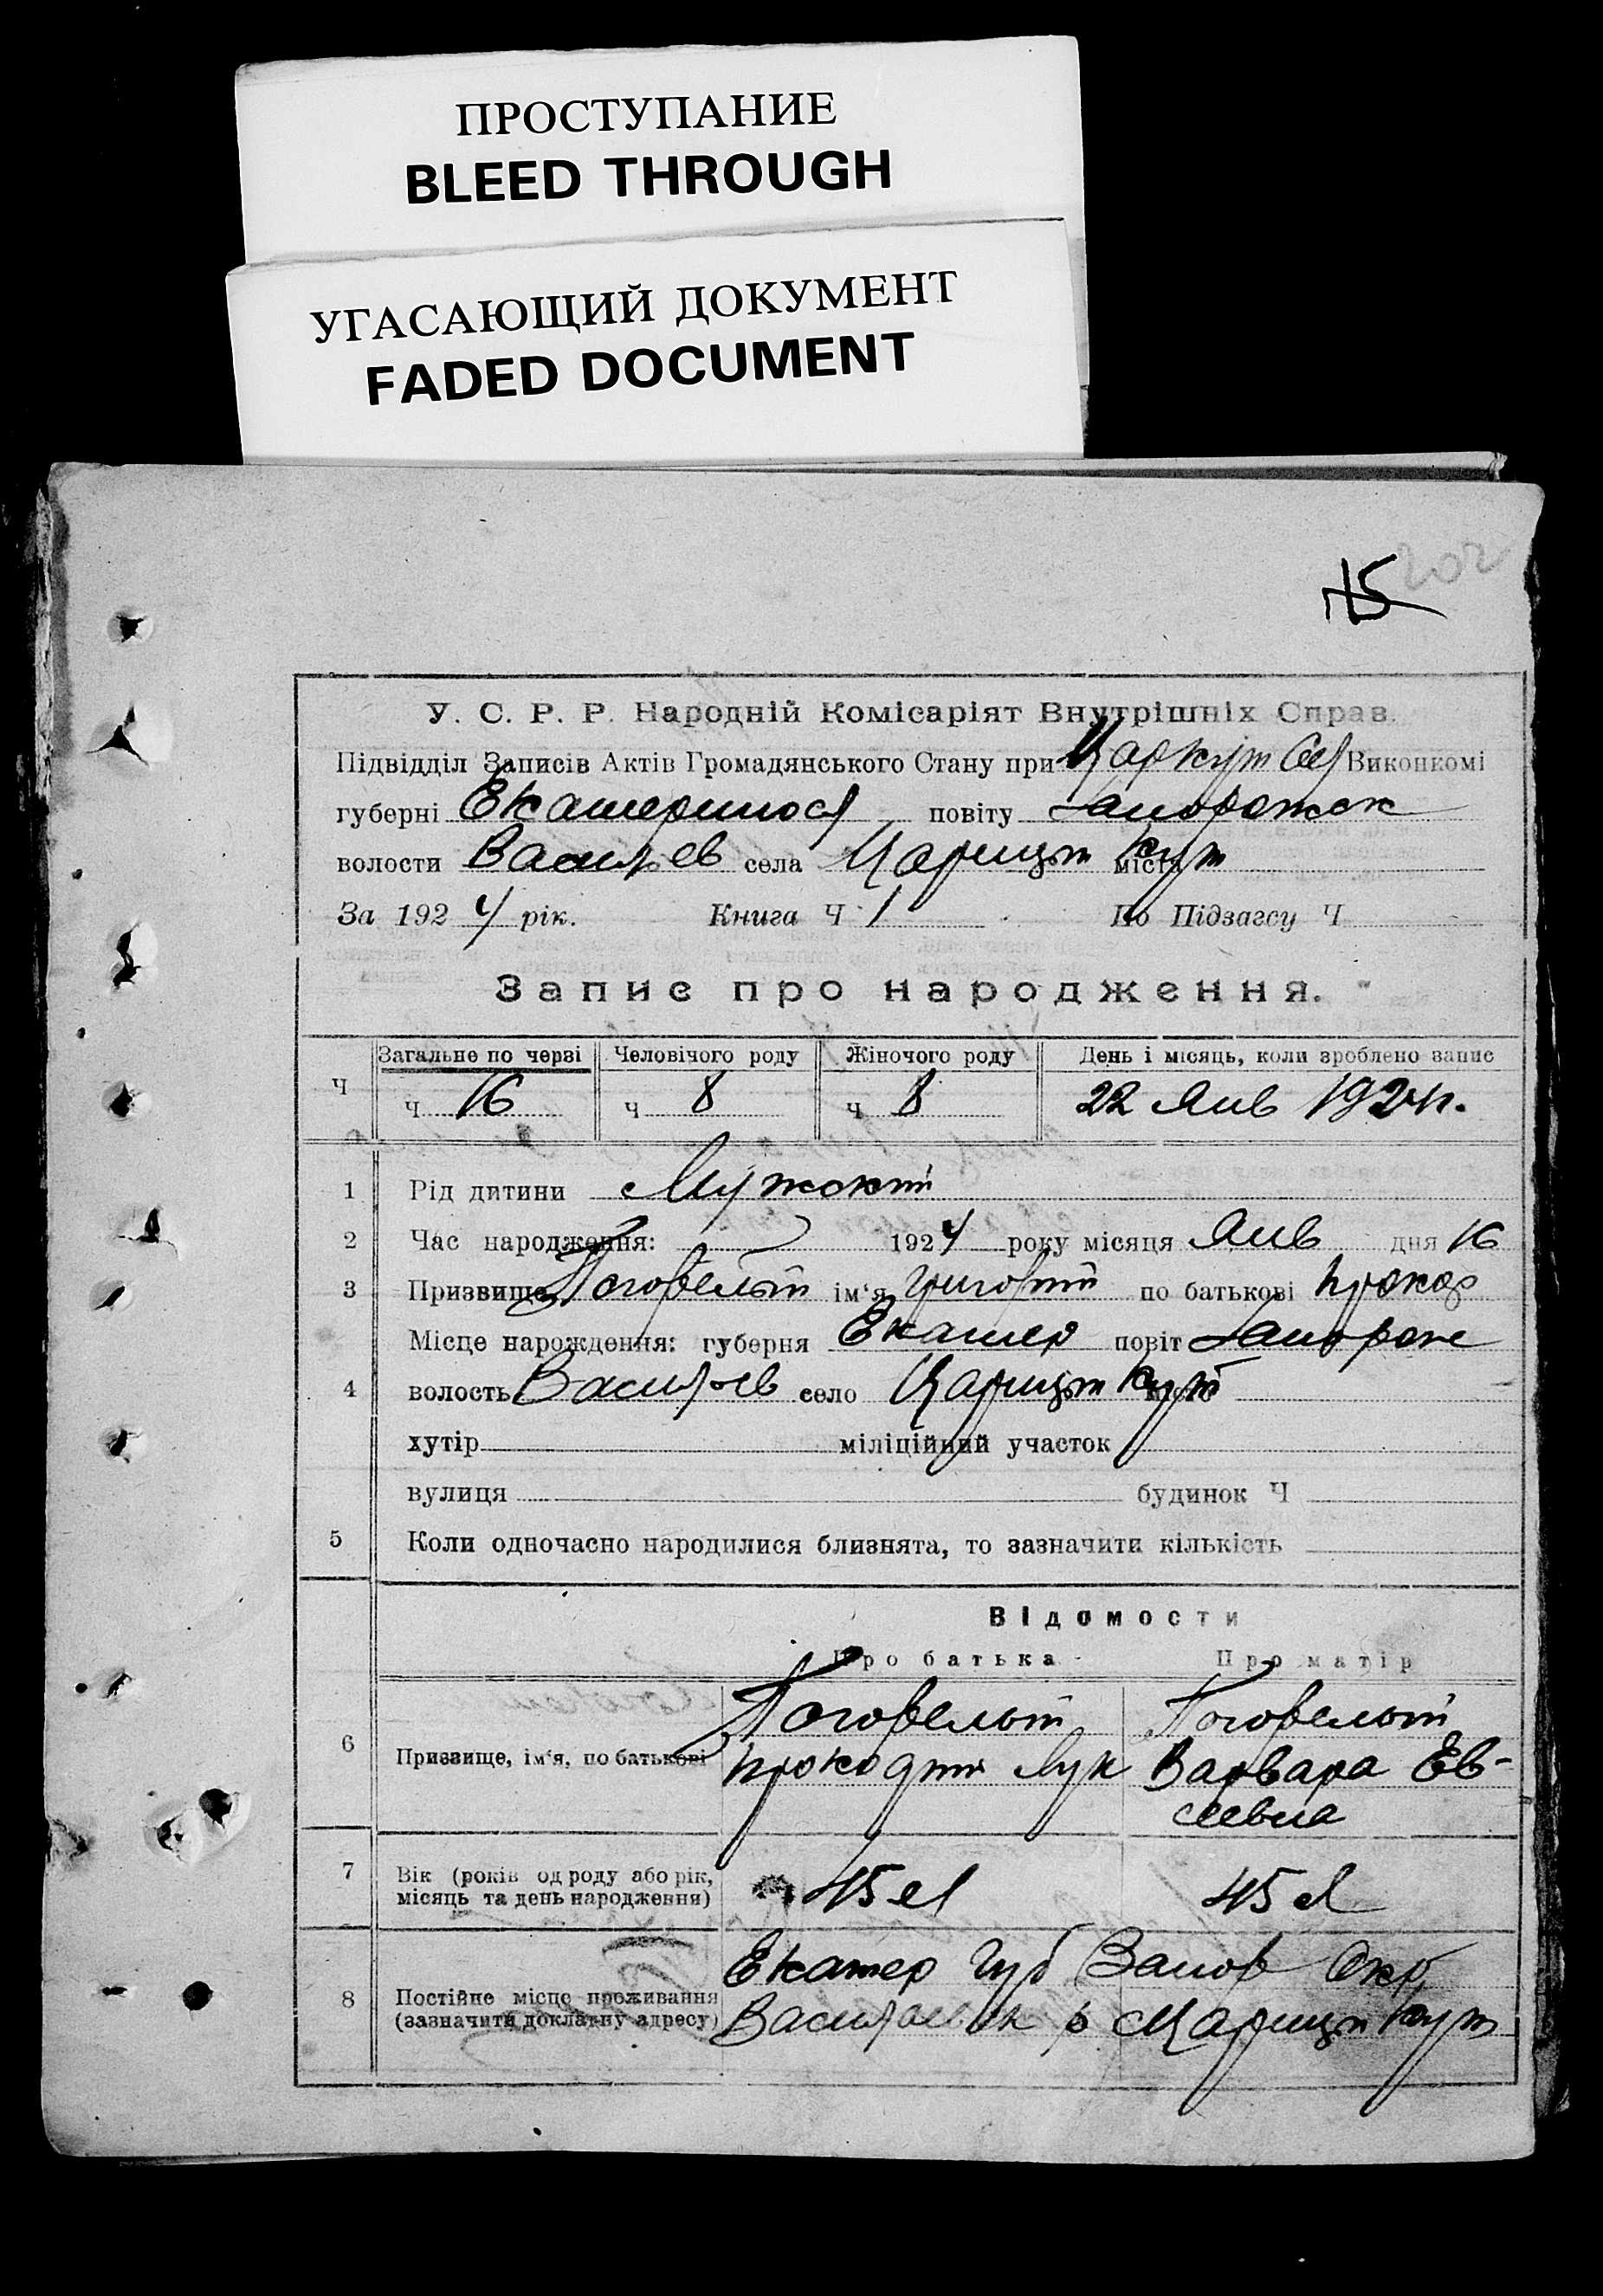 ПРОСТУПАНИЕ
BLEED THROUGH
УГАСАЮЩИЙ ДОКУМЕНТ
FADED DOCUMENT
202
15
У. С. Р. Р. Народній Комісаріят Внутрішніх Справ.
Підвідділ Записів Актів Громадянського Стану при Царкут Сел Виконкомі
губерні Екатериносл повіту Запорожск
волости Васильев села Царицын Кут міста
За 1924 рік. Книга Ч 1 По Підзагсу Ч
Запис про народження.
Загальне по черзі Человічого роду Жіночого роду День і місяць, коли зроблено запис
Ч Ч 16 Ч 8 Ч 8 22 Янв 1924 г.
1 Рід дитини Мужской
2 Час народження: 1924 року місяця Янв дня 16
3 Призвище Погорелый ім‘я Григорий по батькові Прокоф
Місце нарождення: губерня Екатер повіт Запорож
4 волость Васильев село Царицын Кут місто
хутір міліційний участок
вулиця будинок Ч
5 Коли одночасно народилися близнята, то зазначити кількість
Відомости
Про батька Про матір
Погорелый Погорелый
6 Призвище, ім‘я, по батькові Прокофий Лук Варвара Ев-
сеевна
7 Вік (років од роду або рік, місяць та день народження) 45 л 45 л
Екатер Губ Запор Окр
8 Постійне місце проживання
(зазначити докладну адресу) Васильевск р Царицын Кут